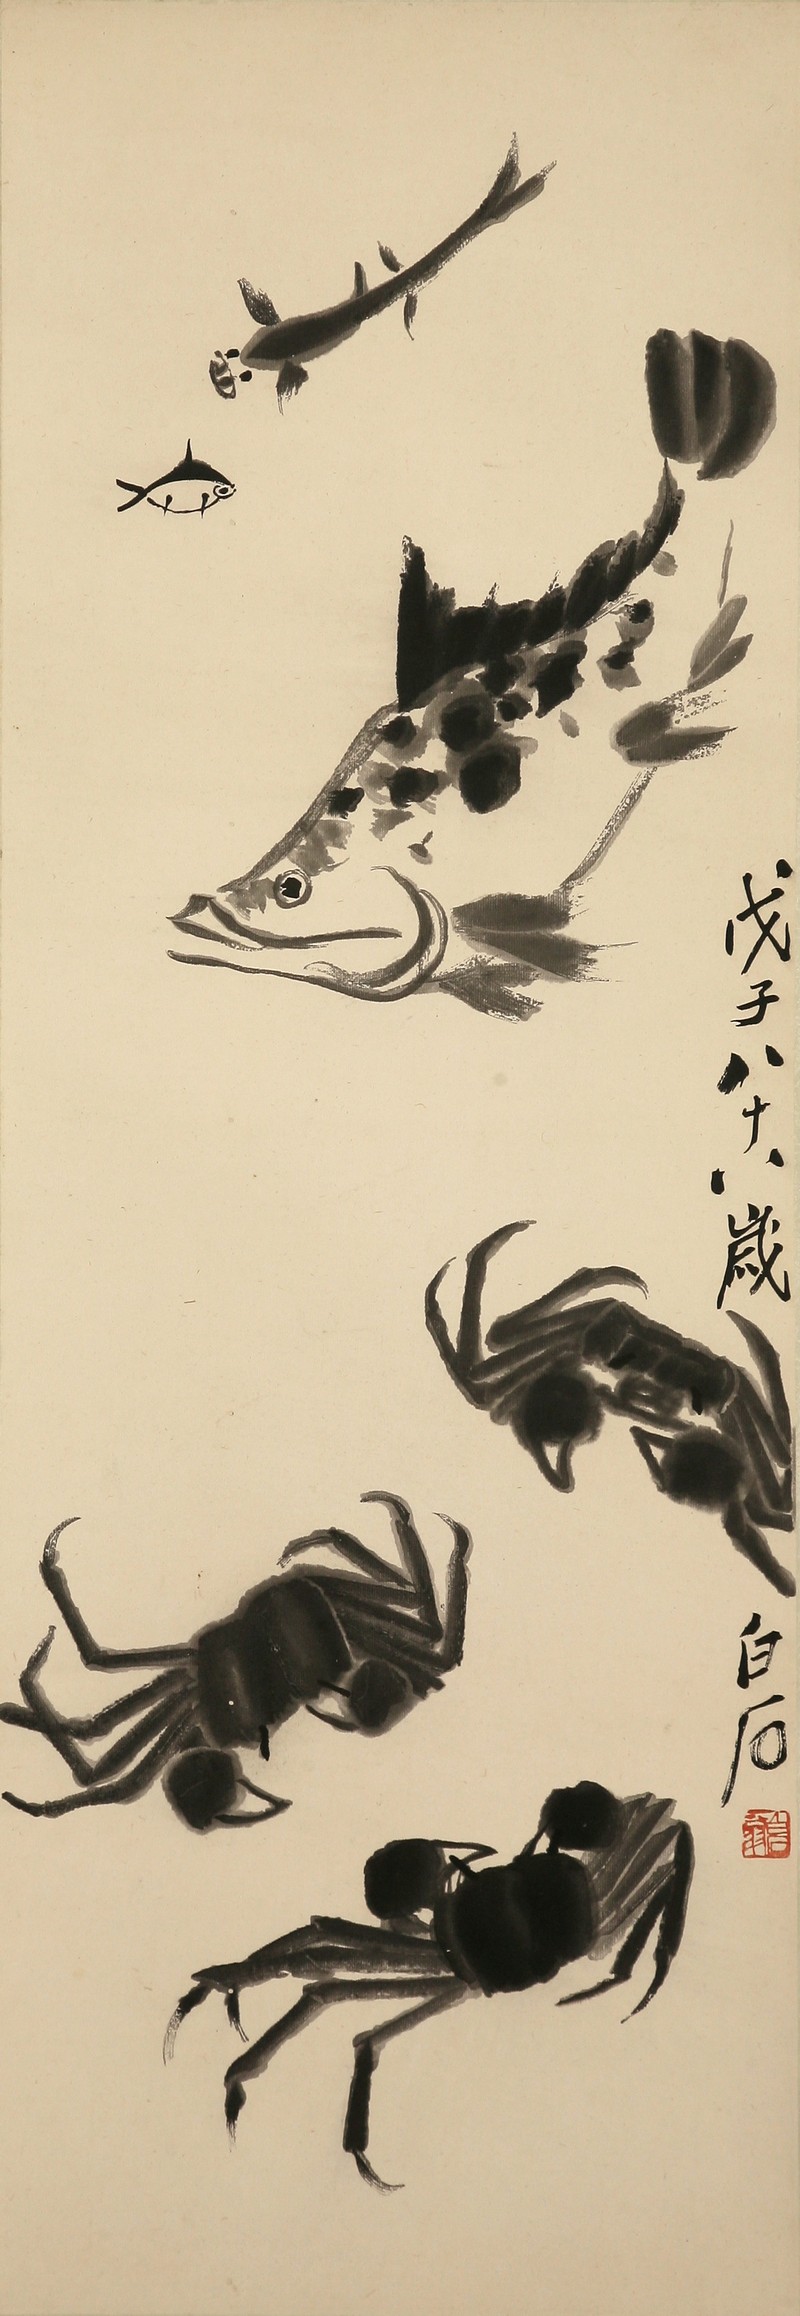 戊子八十八歲
白石